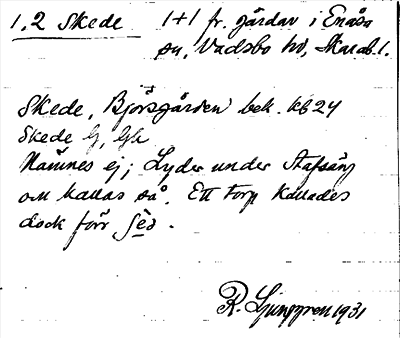 1,2 Skede 1+1 fr. gårdar i Enåsa
sn, Vadsbo hd, Skarab. l.
Skede, Björsgården bek. kb 24
Skede G, Gk
Nämnes ej; Lyder under Stafsäng
och kallas så. Ett torp kallades
dock förr Sèd.
R. Ljunggren 1931